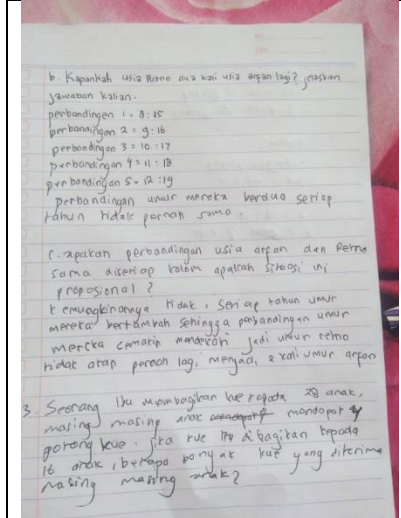 b. Kapankah usia Retno dua kali usia arfan lagi? jelaskan
jawaban kalian.
perbandingen 1 = 8:15
perbandingan 2 = 9:16
perbandingan 3 = 10:17
perbandingan 4 = 11:18
perbandingan 5 = 12:19
perbandingan umur mereka berdua setiap
tahun tidak pernah sama.
C. apakah perbandingan usia arfan dan Retno
sama disetiap kolom apakah situasi ini
proposional?
kemungkinannya tidak, setiap tahun umur
mereka bertambah sehingga perbandingan umur
mereka semakin mendekati jadi umur retno
tidak akan pernah lagi, menjadi, 2 kali umur arfan
3. Seorang Ibu membagikan kue kepada 28 anak,
masing masing anak mendapat 4
potong kue. jika kue itu dibagikan kepada
16 anak, berapa banyak kue yang diterima
masing masing anak?